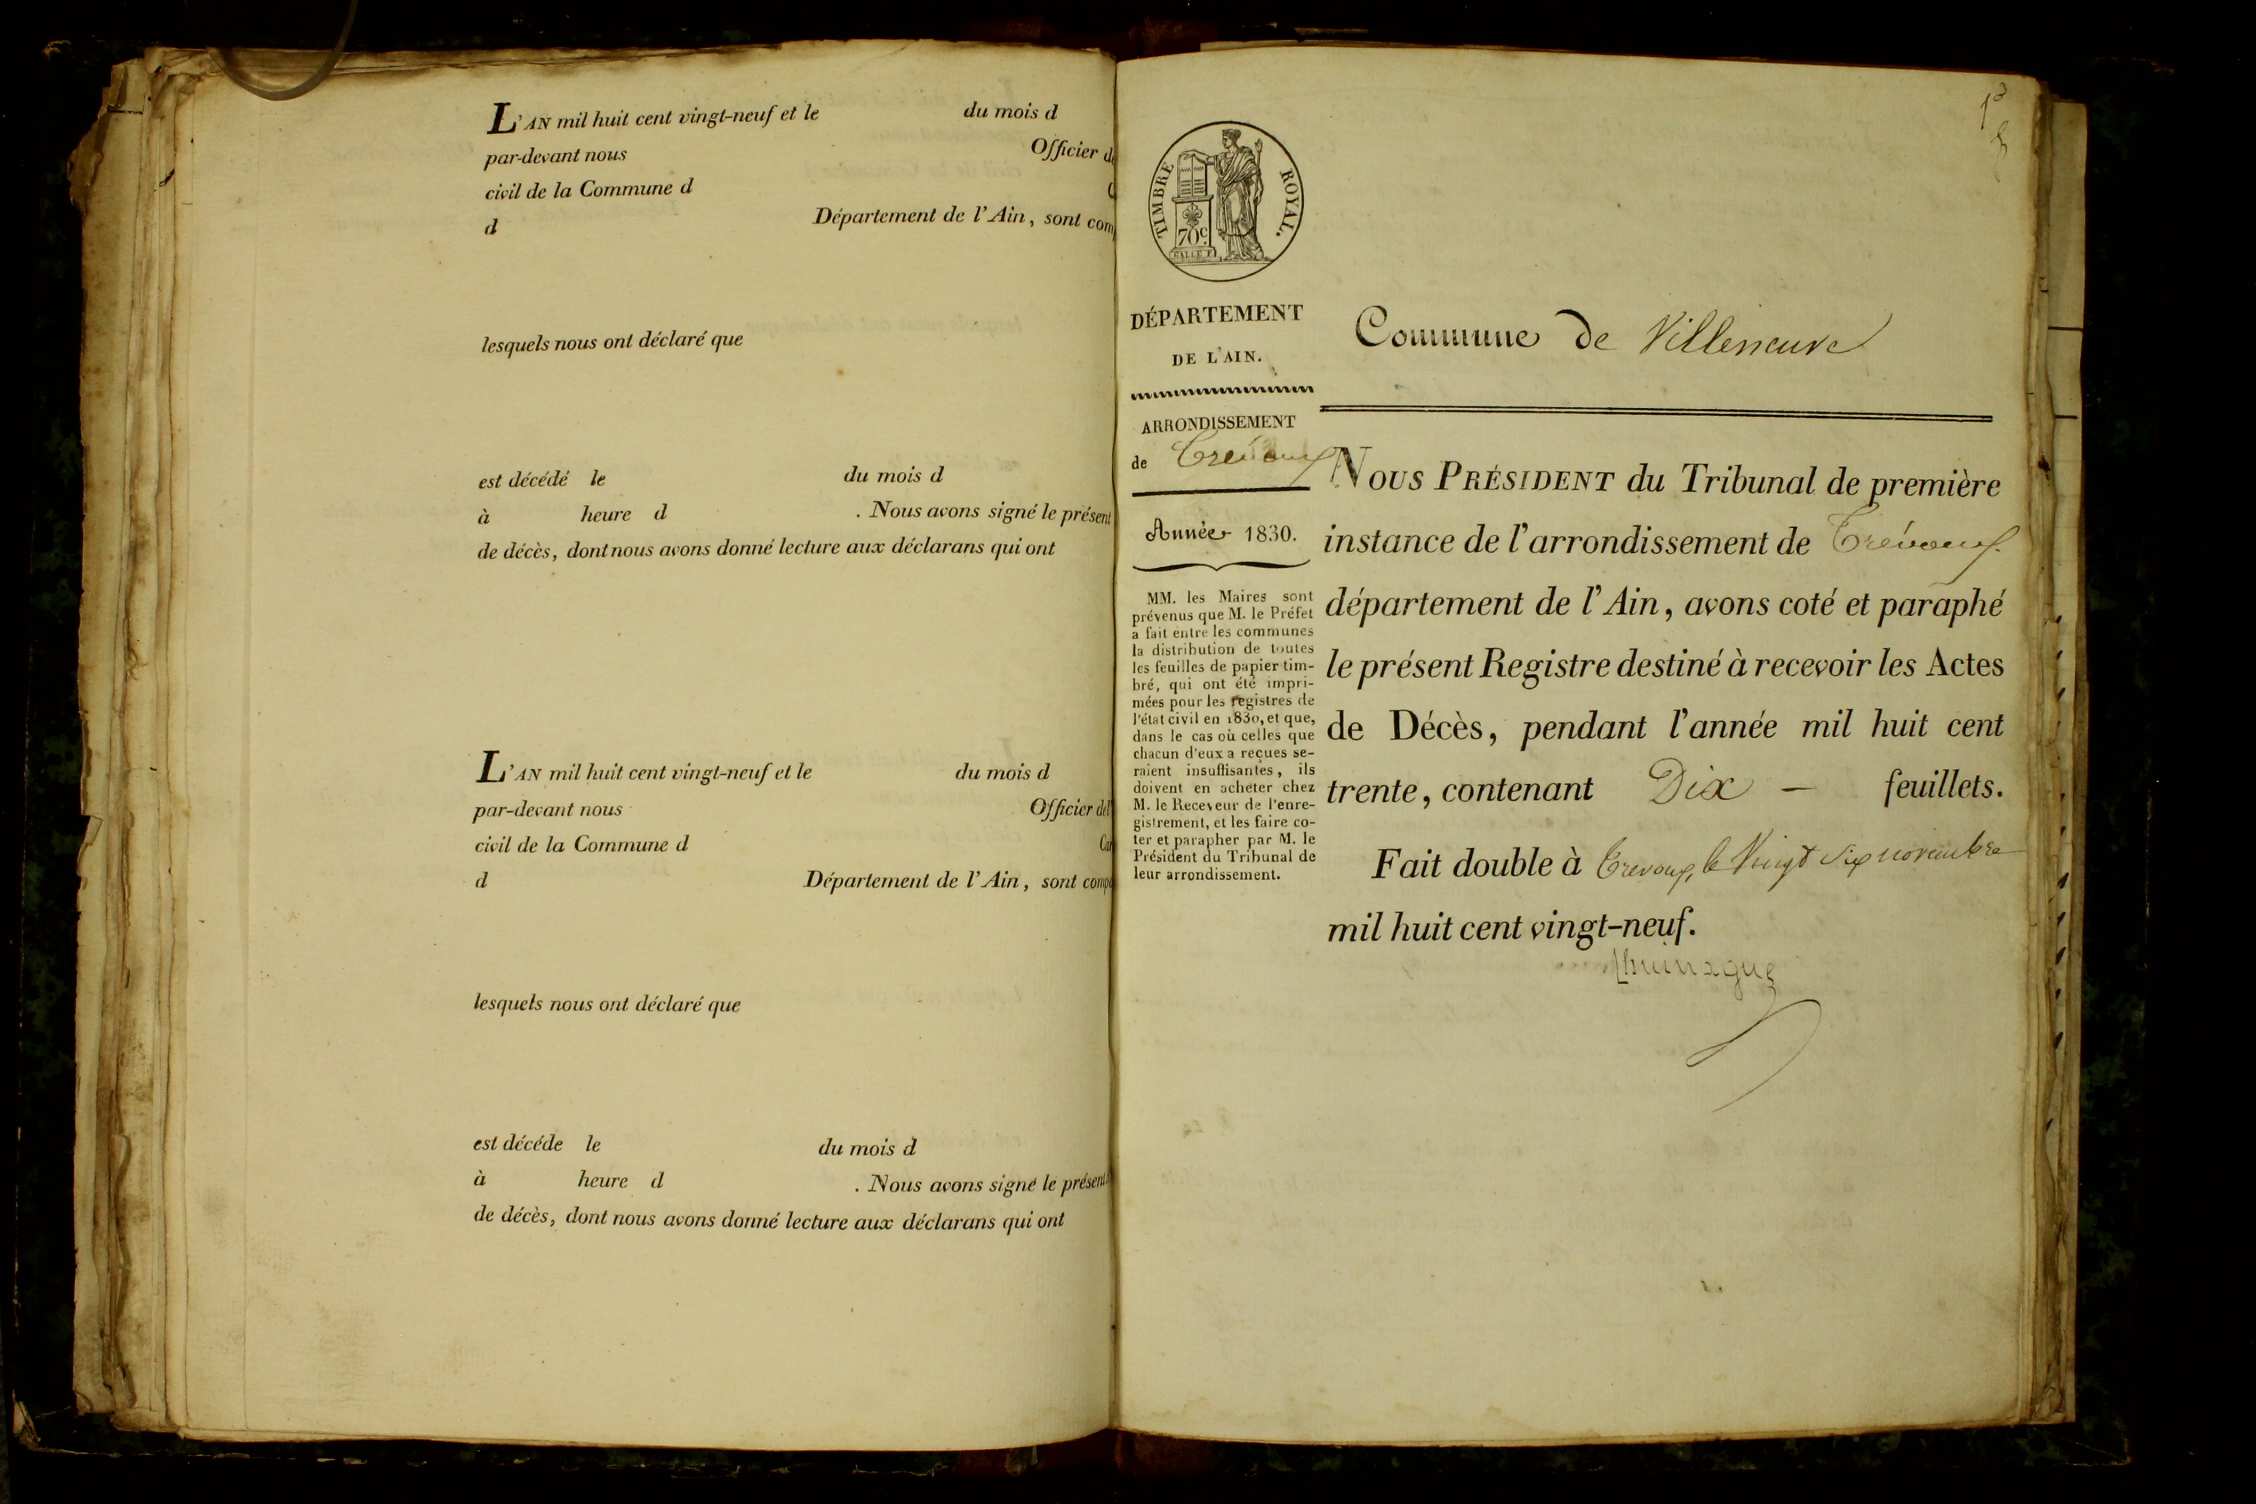 L'AN mil huit cent vingt-neuf et le du mois d
par-devant nous Officier de
civil de la Commune d C
d Département de l'Ain, sont com
lesquels nous ont déclaré que
est décédé le du mois d
à heure d . Nous avons signé le présent
de décès, dont nous avons donné lecture aux déclarans qui ont
L'AN mil huit cent vingt-neuf et le du mois d
par-devant nous Officier de l'
civil de la Commune d Can
d Département de l'Ain, sont comp
lesquels nous ont déclaré que
est décéde le du mois d
à heure d . Nous avons signé le présent
de décès, dont nous avons donné lecture aux déclarans qui ont
TIMBRE ROYAL.
70c
DÉPARTEMENT
DE L'AIN.
ARRONDISSEMENT
de Trévoux
Année 1830.
MM. les Maires sont
prévenus que M. le Préfet
a fait entre les communes
la distribution de toutes
les feuilles de papier tim-
bré, qui ont été impri-
mées pour les registres de
l'état civil en 1830, et que,
dans le cas où celles que
chacun d'eux a reçues se-
raient insuffisantes, ils
doivent en acheter chez
M. le Receveur de l'enre-
gistrement, et les faire co-
ter et parapher par M. le
Président du Tribunal de
leur arrondissement.
Commune de Villeneuve
NOUS PRÉSIDENT du Tribunal de première
instance de l'arrondissement de Trévoux.
département de l'Ain, avons coté et paraphé
le présent Registre destiné à recevoir les Actes
de Décès, pendant l'année mil huit cent
trente, contenant Dix — feuillets.
Fait double à Trevoux, le Vingt Six novembre
mil huit cent vingt-neuf.